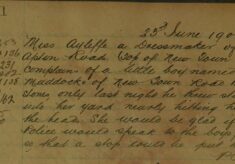 23rd June 190
Miss Ayliffe a Dressmaker of
Apton Road, Top of New Town
complains of a little boy named
Maddocks of New Town Road
only last night he threw
into her yard nearly hitting her
the head. She would be glad if
Police would speak to the boys
so that a stop could be put